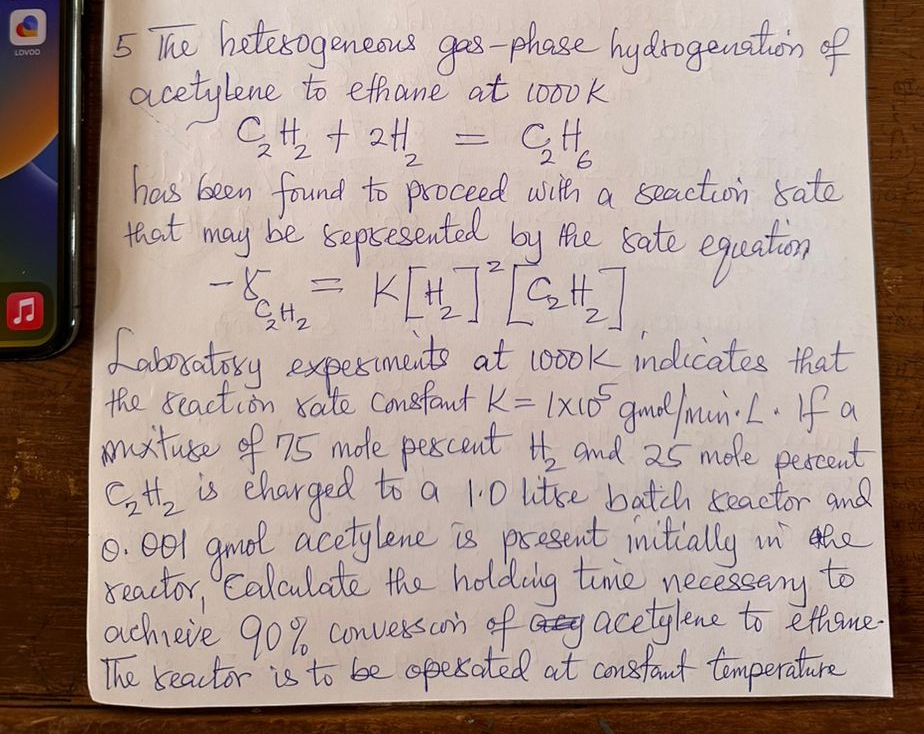 LOVOO
5 The heterogeneous gas-phase hydrogenation of
acetylene to ethane at 1000K
C₂H₂ + 2H₂ = C₂H₆
has been found to proceed with a reaction rate
that may be represented by the rate equation
-r_C₂H₂ = K[H₂]²[C₂H₂]
Laboratory experiments at 1000K indicates that
the reaction rate constant K = 1×10⁵ gmol/min·L. If a
mixture of 75 mole percent H₂ and 25 mole percent
C₂H₂ is charged to a 1.0 litre batch reactor and
0.001 gmol acetylene is present initially in the
reactor, Calculate the holding time necessary to
achieve 90% conversion of acetylene to ethane.
The reactor is to be operated at constant temperature